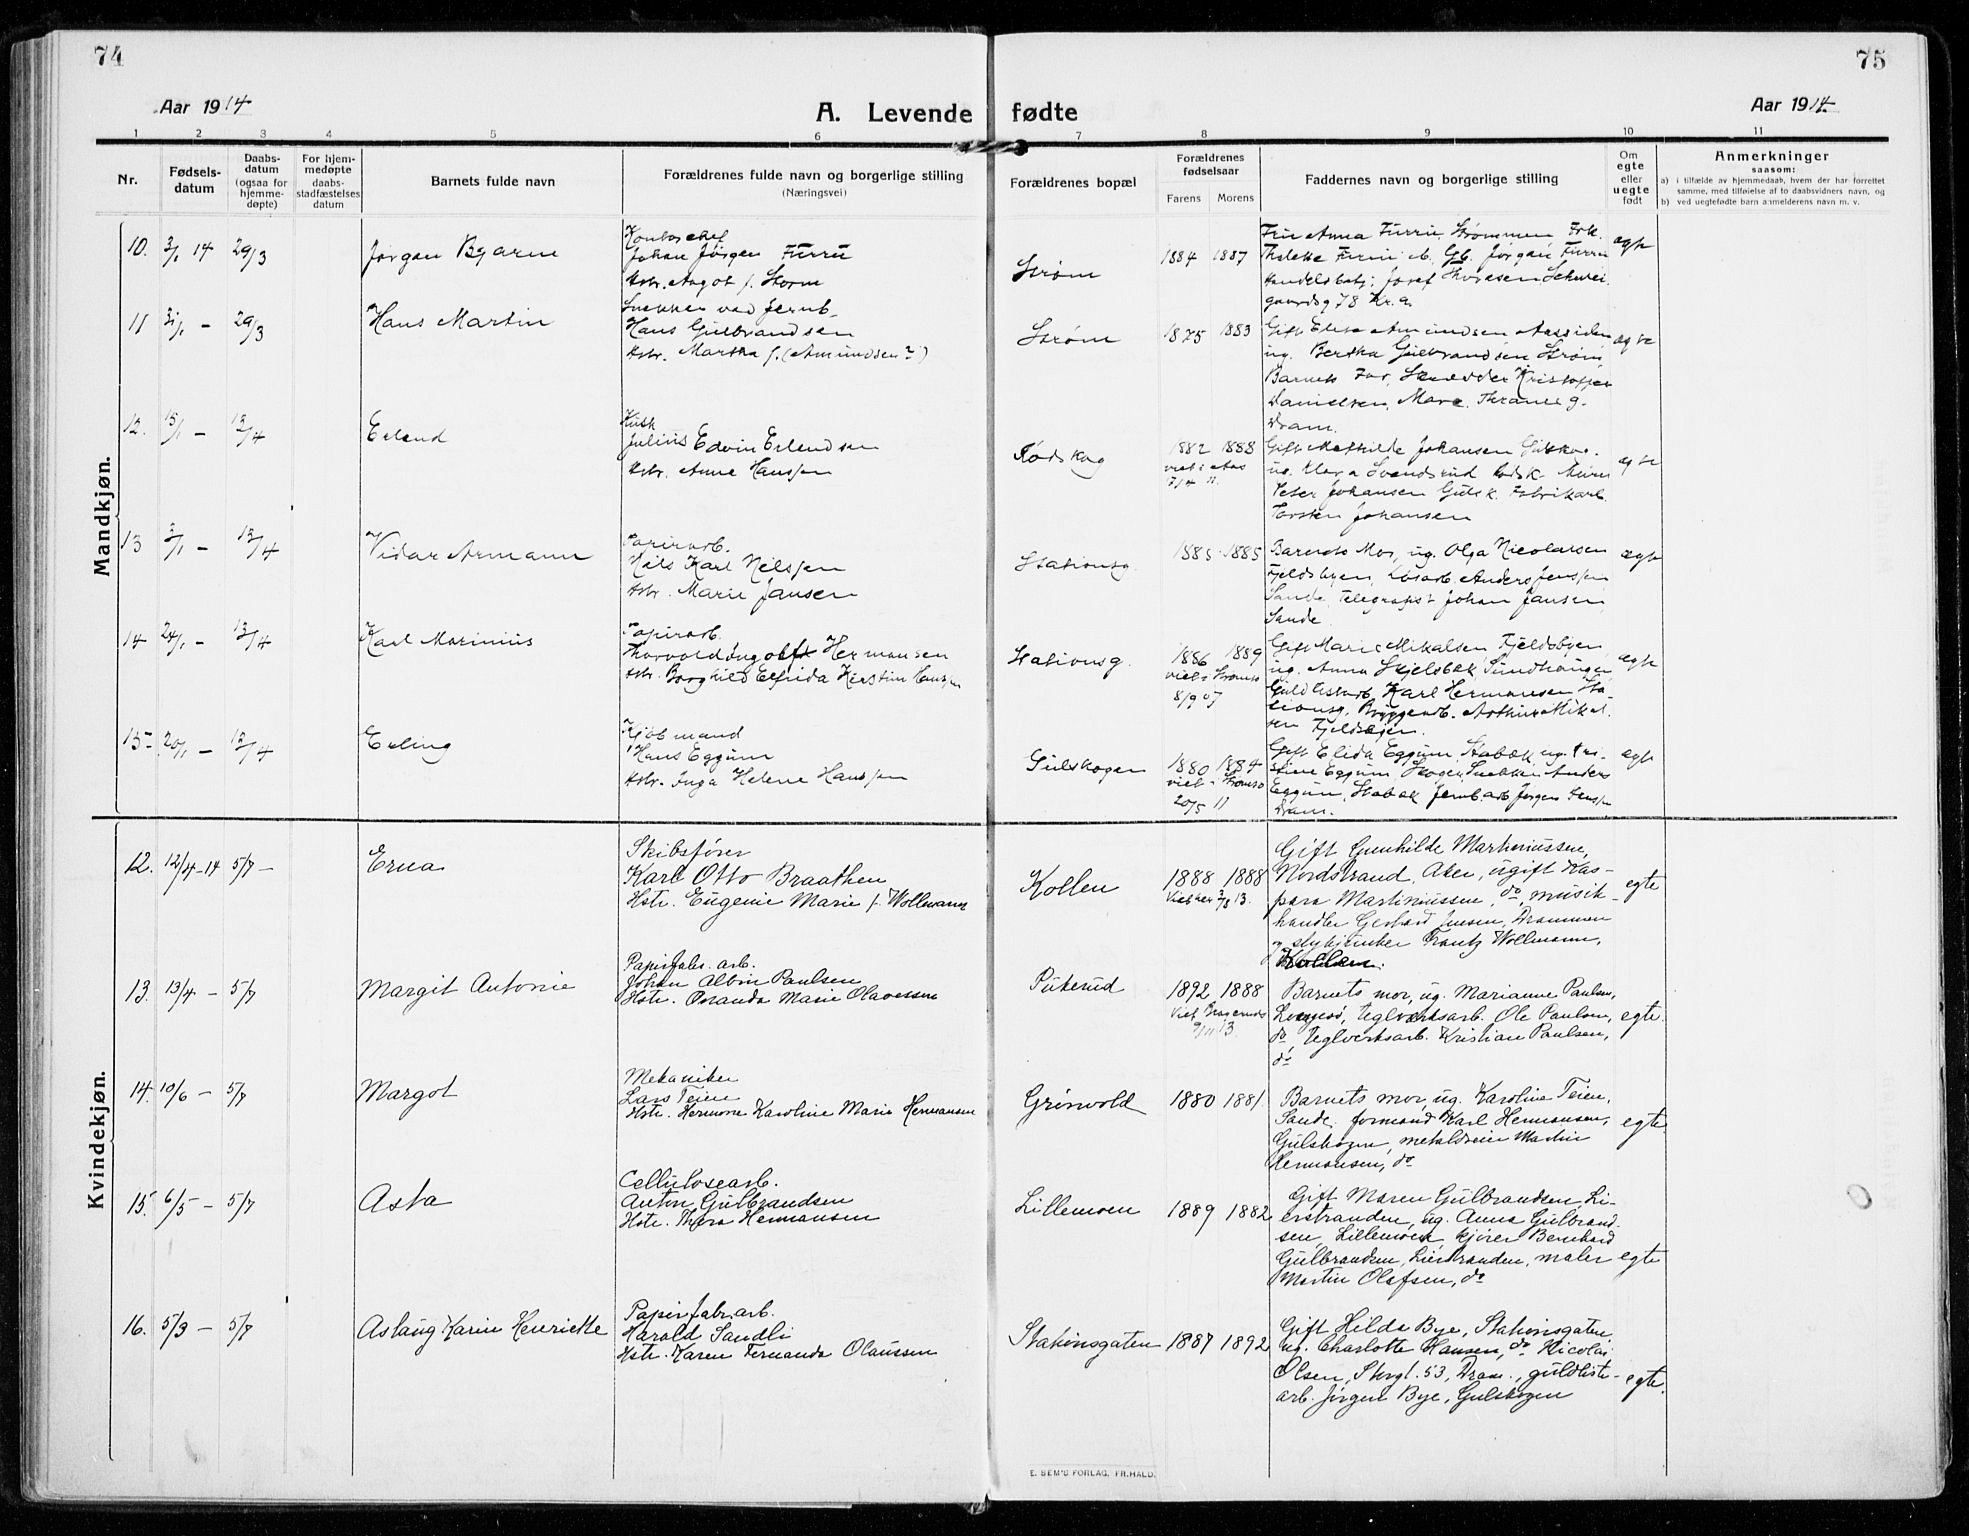 74
75
Aar 1914
A. Levende fødte
Aar 1914
1 2 3 4 5 6 7 8 9 10 11
Nr.
Fødsels-
datum
Daabs-
datum
(ogsaa for
hjemme-
døpte)
For hjem-
medøpte
daabs-
stadfæstelses
datum
Barnets fulde navn
Forældrenes fulde navn og borgerlige stilling
(Næringsvei)
Forældrenes bopæl
Forældrenes
fødselsaar
Farens Morens
Faddernes navn og borgerlige stilling
Om
egte
eller
uegte
født
Anmerkninger
saasom:
a) i tilfælde av hjemmedaab, hvem der har forrettet
samme, med tilføielse af to daabsvidners navn, og
b) ved uegtefødte barn anmelderens navn m. v.
Mandkjøn.
10. 3/1 14 29/3
Jørgen Bjarne
Johan Jörgen Furru
Hstr. Aagot f. Storm
Strøm
1884 1887
Fru Anna Furru, Strømmen Frk.
egte
11 31/1 - 29/3
Hans Martin
Snekker ved Jernb.
Hans Gulbrandsen
Hstr. Martha f. (Amundsen?)
Strøm
1875 1883
Gift Elise Amundsen Aassiden
ug. Bertha Gulbrandsen Strøm
Barnets Far, Skrædder Kristoffer
Danielsen, Marc. Thranes g.
Dram.
egte
12. 15/1 - 13/4
Erlend
Kusk
Julius Edvin Erlendsen
Hstr. Anne Hanssen
Rødskog
1882 1888
viet i Aas
Gift Mathilde Johansen Gulskog.
Peter Johansen Gulsk. Fabrikarb.
Torsten Johansen
egte
13 3/1 - 13/4
Vidar Armann
Papirarb.
Nils Karl Nilssen
Hstr. Marie Jansen
Stationsg.
1885 1885
Barnets Mor, ug. Olga Nicolaisen
Fjeldsbyen, Løsarb. Anders Jenssen
Sande, Telegrafist Johan Jansen
Sande
egte
14 24/1 - 13/4
Karl Marinius
Papirarb.
Thorvald Ingolf Hermansen
Hstr. Borghild Elfrida Kirstine Hanssen
Stationsg.
1886 1889
viet i Strømsø
8/9 07
Gift Marie Mikalsen Fjeldsbyen
ug. Anna Skjelsbæk Sundhaugen
Guldlistarb. Karl Hermansen Sta-
tionsg. Bryggearb. Arthur Mikal-
sen Fjeldsbyen.
egte
15- 20/1 - 13/4
Erling
Kjøbmand
Hans Eggum
Hstr. Inga Helene Hanssen
Gulskogen
1880 1884
viet i Strømsø
20/5 11
Gift Elida Eggum, Stabæk, ug. Kri-
stine Eggum, Skoger, Snekker Anders
Eggum, Stabæk Jernb.arb. Jørgen Jenssen
Dram.
egte
Kvindekjøn.
12. 12/4-14 5/7 -
Erna
Skibsfører
Karl Otto Braathen
Hstr. Eugenie Marie f. Wollmann
Kollen
1888 1888
Viet her 2/8 13.
Gift Gunhilde Martiniussen,
Nordstrand, Aker, ugift Kas-
para Martiniussen, do, musik-
handler Gerhard Jensen, Drammen
og styrjunker Frantz Wollmann,
Kollen.
egte
13. 13/4 - 5/7
Margit Antonie
Papirfabr. arb.
Johan Albin Paulsen
Hstr. Poranda Marie Olavessen
Pukerud
1892 1888
Viet Bragernes
9/11 13.
Barnets mor, ug. Marianne Paulsen,
Langesø, Teglverksarb. Ole Paulsen,
do, Teglverksarb. Kristian Paulsen,
do
egte.
14. 10/6 - 5/7
Margot
Mekaniker
Lars Teien
Hstr. Hermine Karoline Marie Hermansen
Grönvold
1880 1881.
Barnets mor, ug. Karoline Teien,
Sande, formand Karl Hermansen,
Gulskogen, metaldreier Martin
Hermansen, do
egte.
15. 6/5 - 5/7
Asta
Cellulosearb.
Anton Gulbrandsen
Hstr. Thora Hermansen
Lillemoen
1889 1882
Gift Maren Gulbrandsen Li-
erstranden, ug. Anna Gulbrand-
sen, Lillemoen, kjører Bernhard
Gulbrandsen, Lierstranden, maler
Martin Olafsen, do
egte
16. 5/3 - 5/7
Aslaug Karin Henriette
Papirfabr.arb.
Harald Sandli
Hstr. Karen Fernanda Olaussen
Stationsgaten
1887 1892
Gift Hilda Bye, Stationsgaten,
ug. Charlotte Hansen, do Nicolai
Olsen, Storgt. 53, Dram., guldliste-
arb. Jørgen Bye, Gulskogen
egte.
E. SEM'S FORLAG, FR.HALD.